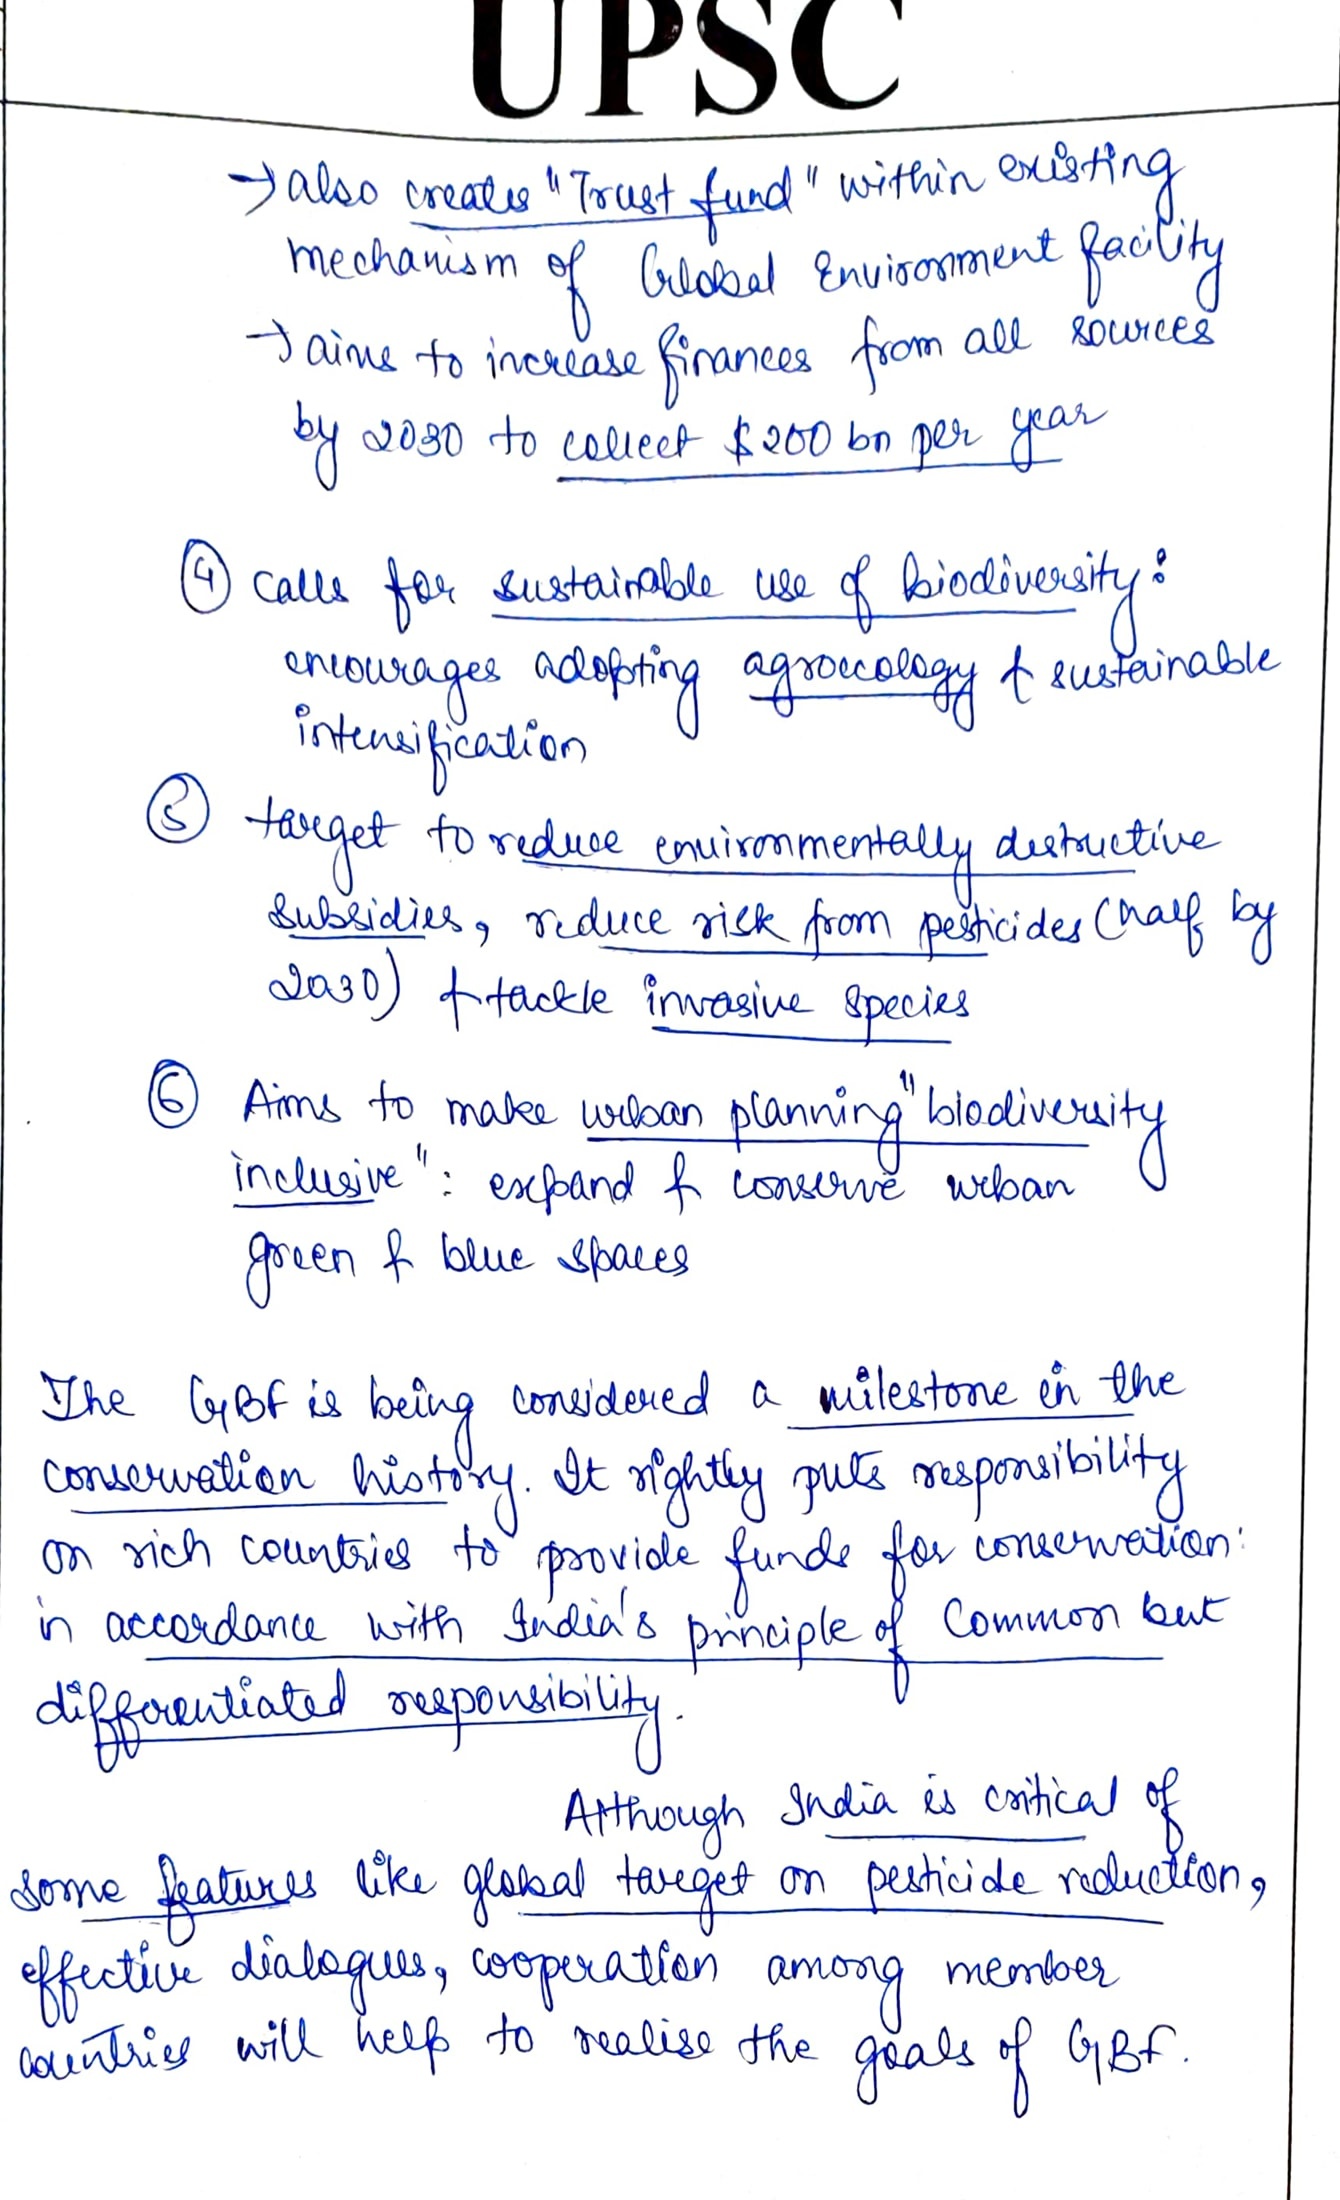 UPSC
→ also creates "Trust fund" within existing
mechanism of Global Environment facility
→ aims to increase finances from all sources
by 2030 to collect $200 bn per year
④ calls for sustainable use of biodiversity:
encourages adopting agroecology & sustainable
intensification
⑤ target to reduce environmentally destructive
subsidies, reduce risk from pesticides (half by
2030) & tackle invasive species
⑥ Aims to make urban planning "biodiversity
inclusive": expand & conserve urban
green & blue spaces
The GBF is being considered a milestone in the
conservation history. It rightly puts responsibility
on rich countries to provide funds for conservation:
in accordance with India's principle of Common but
differentiated responsibility.
Although India is critical of
some features like global target on pesticide reduction,
effective dialogues, cooperation among member
countries will help to realise the goals of GBF.